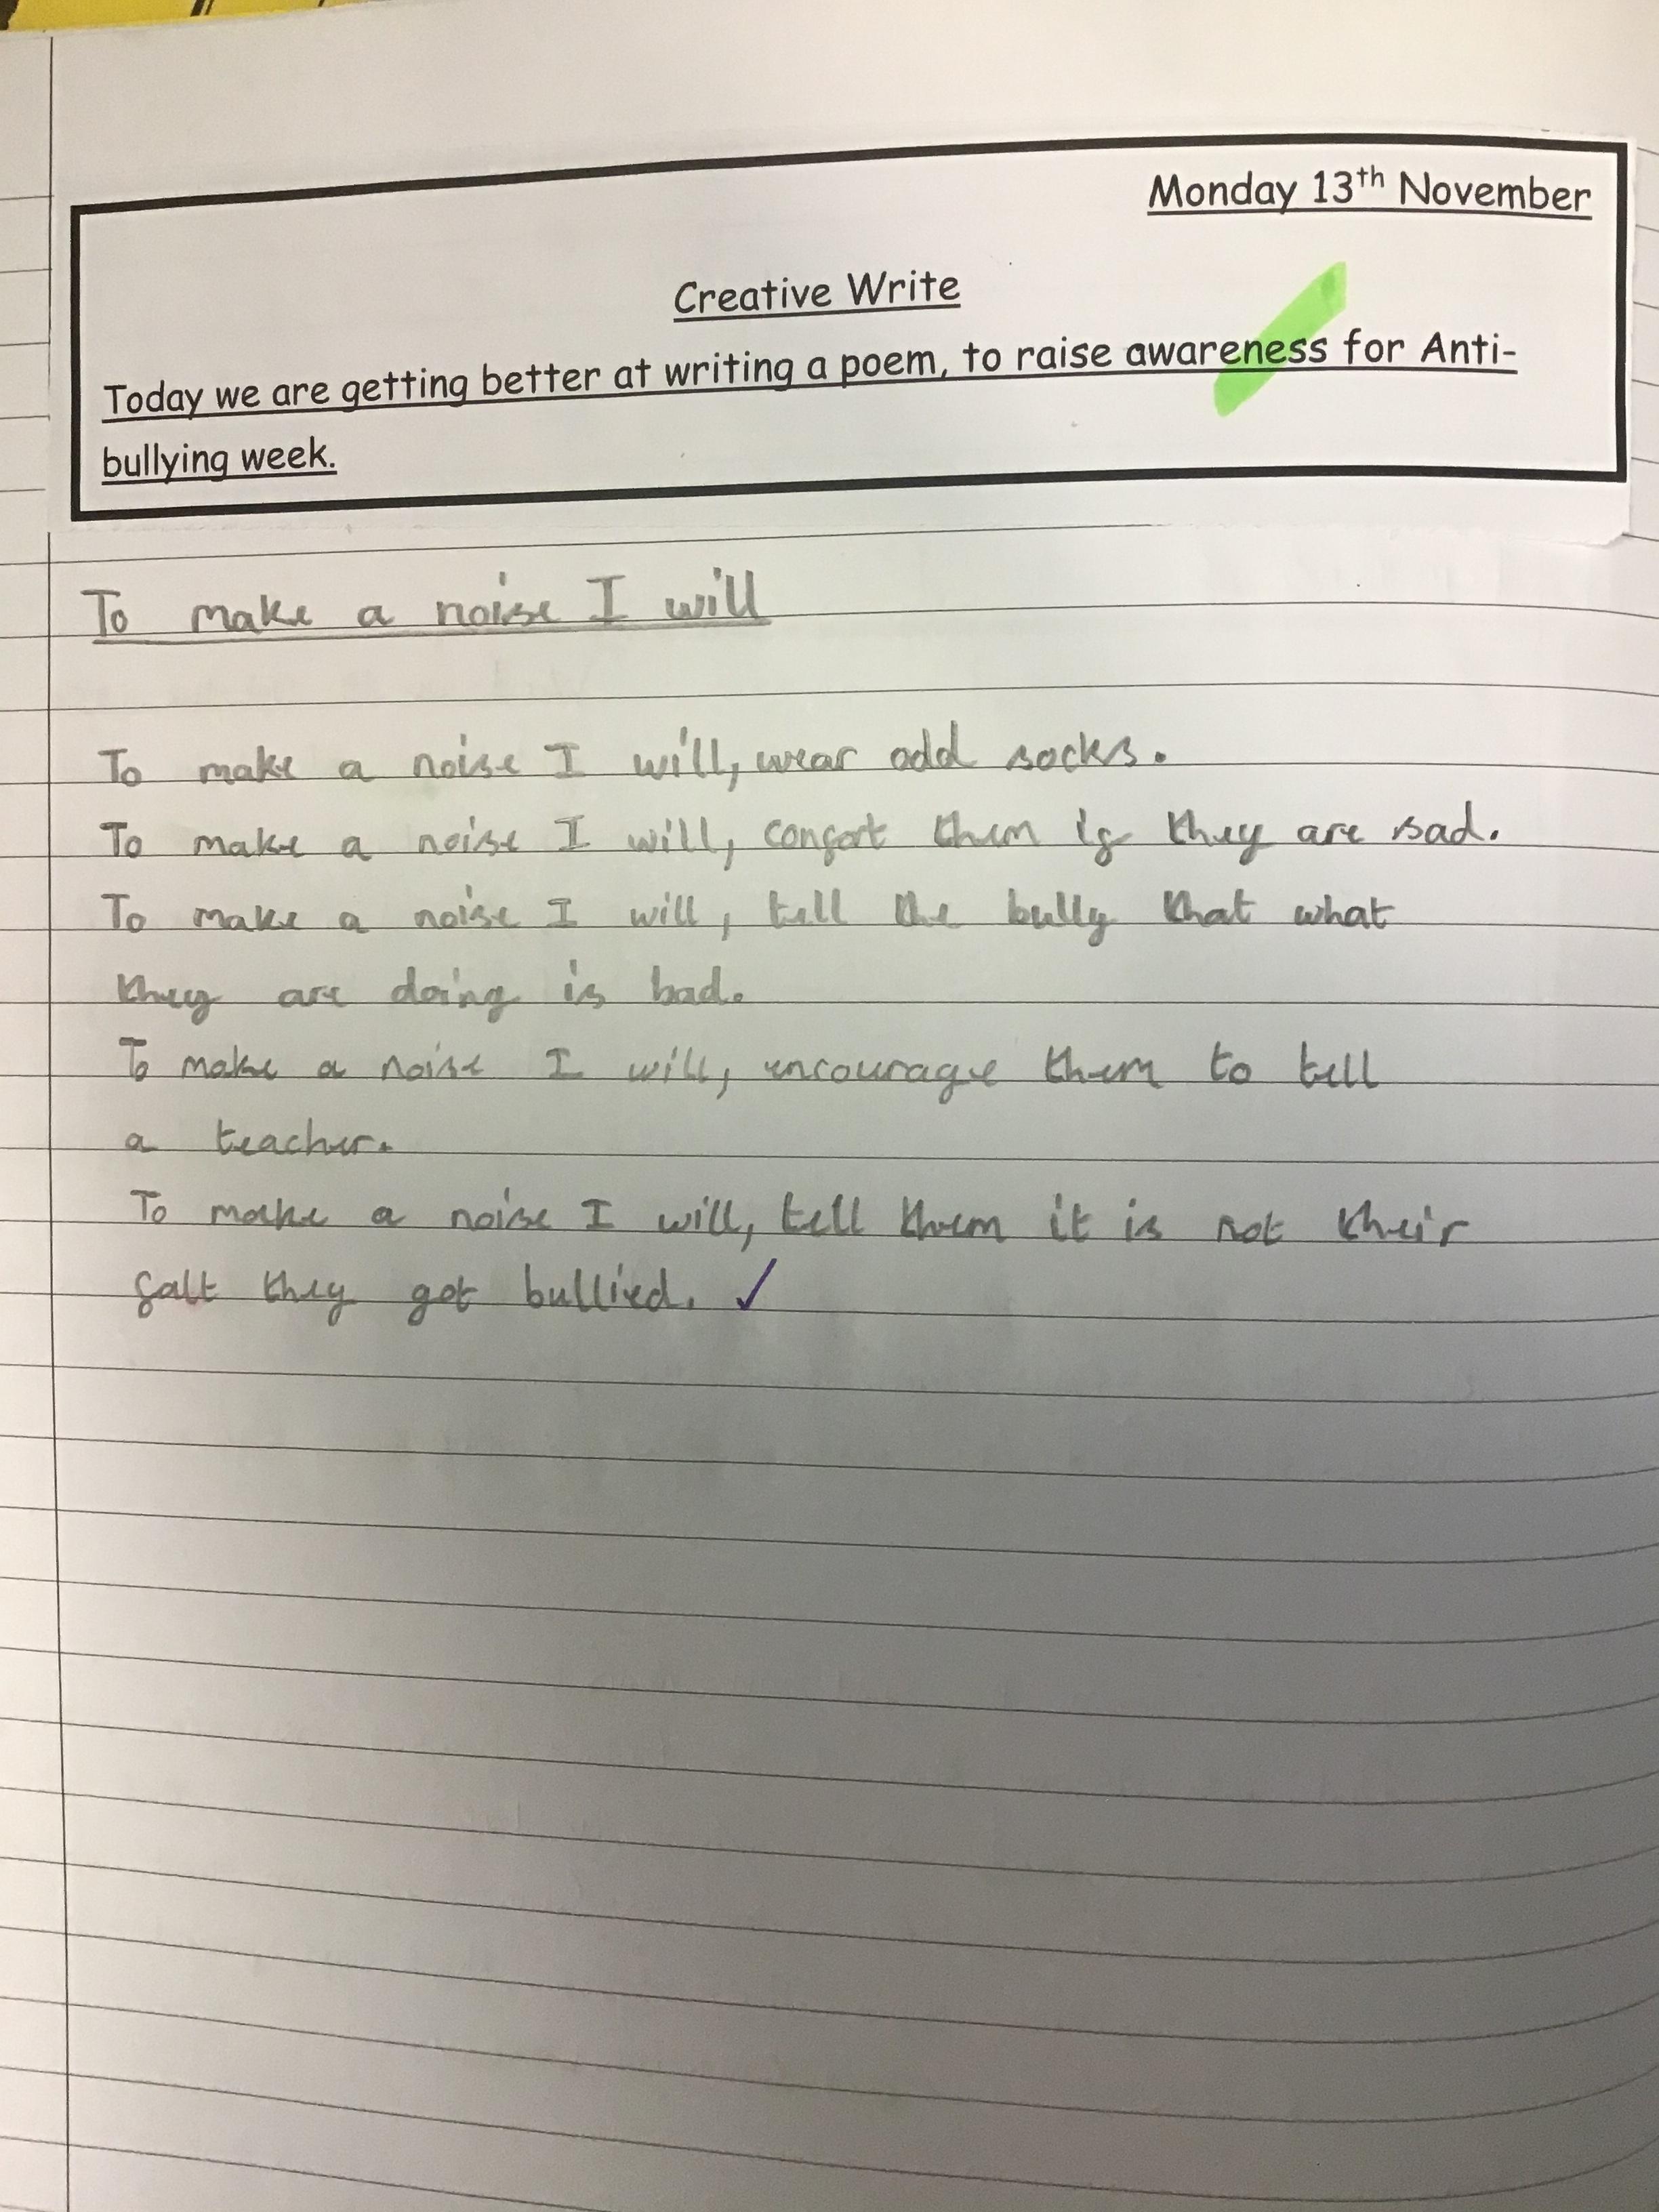 Monday 13th November
Creative Write
Today we are getting better at writing a poem, to raise awareness for Anti-
bullying week.
To make a noise I will
To make a noise I will, wear odd socks.
To make a noise I will, confort them if they are sad.
To make a noise I will, tell the bully that what
they are doing is bad.
To make a noise I will, encourage them to tell
a teacher.
To make a noise I will, tell them it is not their
falt they got bullied. ✓